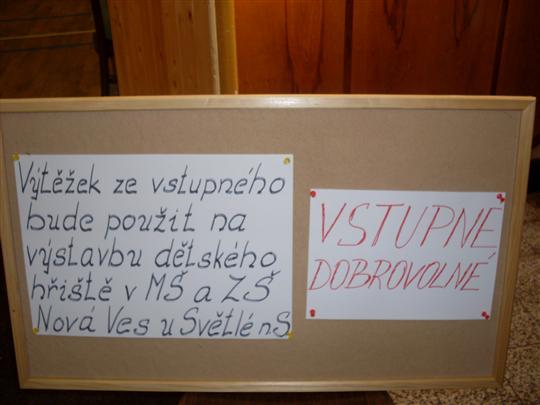 Výtěžek ze vstupného
bude použit na
výstavbu dětského
hřiště v MŠ a ZŠ
Nová Ves u Světlé nS
VSTUPNÉ
DOBROVOLNÉ